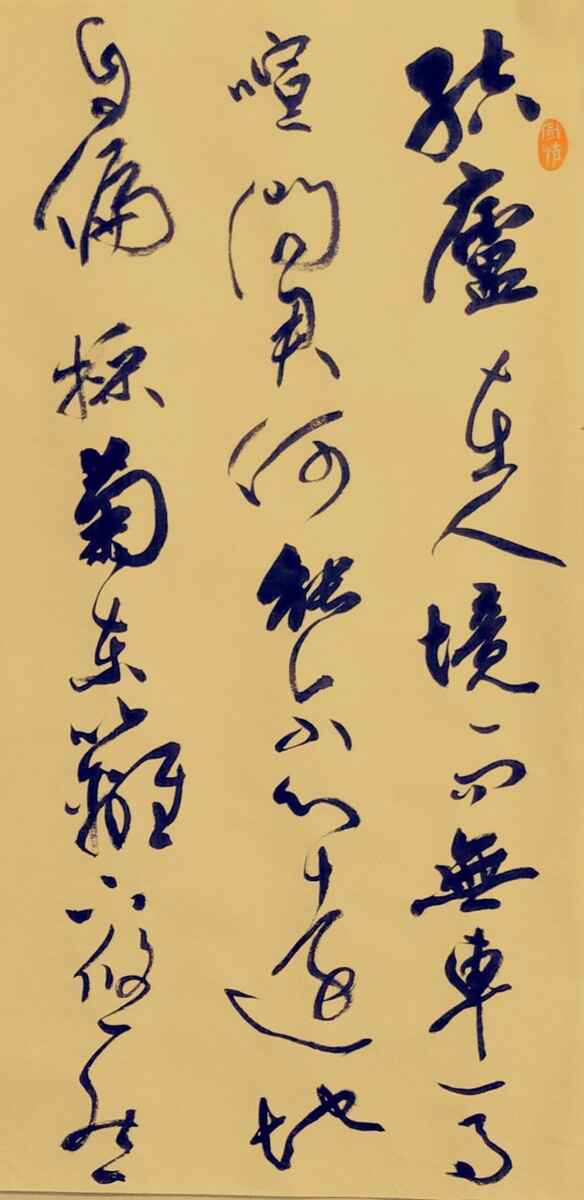 結廬在人境而無車馬
喧問君何能尔心遠地
自偏採菊東籬下悠然